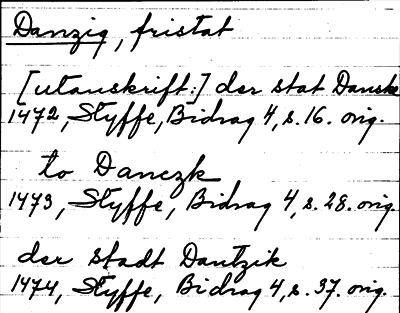 Danzig, fristat
[utanskrift:] der stat Danske
1472, Styffe, Bidrag 4, s. 16. orig.
to Danczk
1473, Styffe, Bidrag 4, s. 28. orig.
der stadt Dantzik
1474, Styffe, Bidrag 4, s. 37. orig.